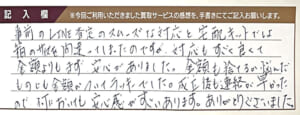 記入欄 ※今回ご利用いただきました買取サービスの感想を、手書きにてご記入お願いします。
事前のLINE査定のスムーズな対応と宅配キットでは
箱のサイズ間違ってしまったのですが、対応もすごく良くて
金額よりもまず安心がありました。金額も捨てるか悩んだ
ものにも金額がついてラッキーでした。成立後も連絡が早かった
ので何においても安心感がすごいあります。ありがとうございました